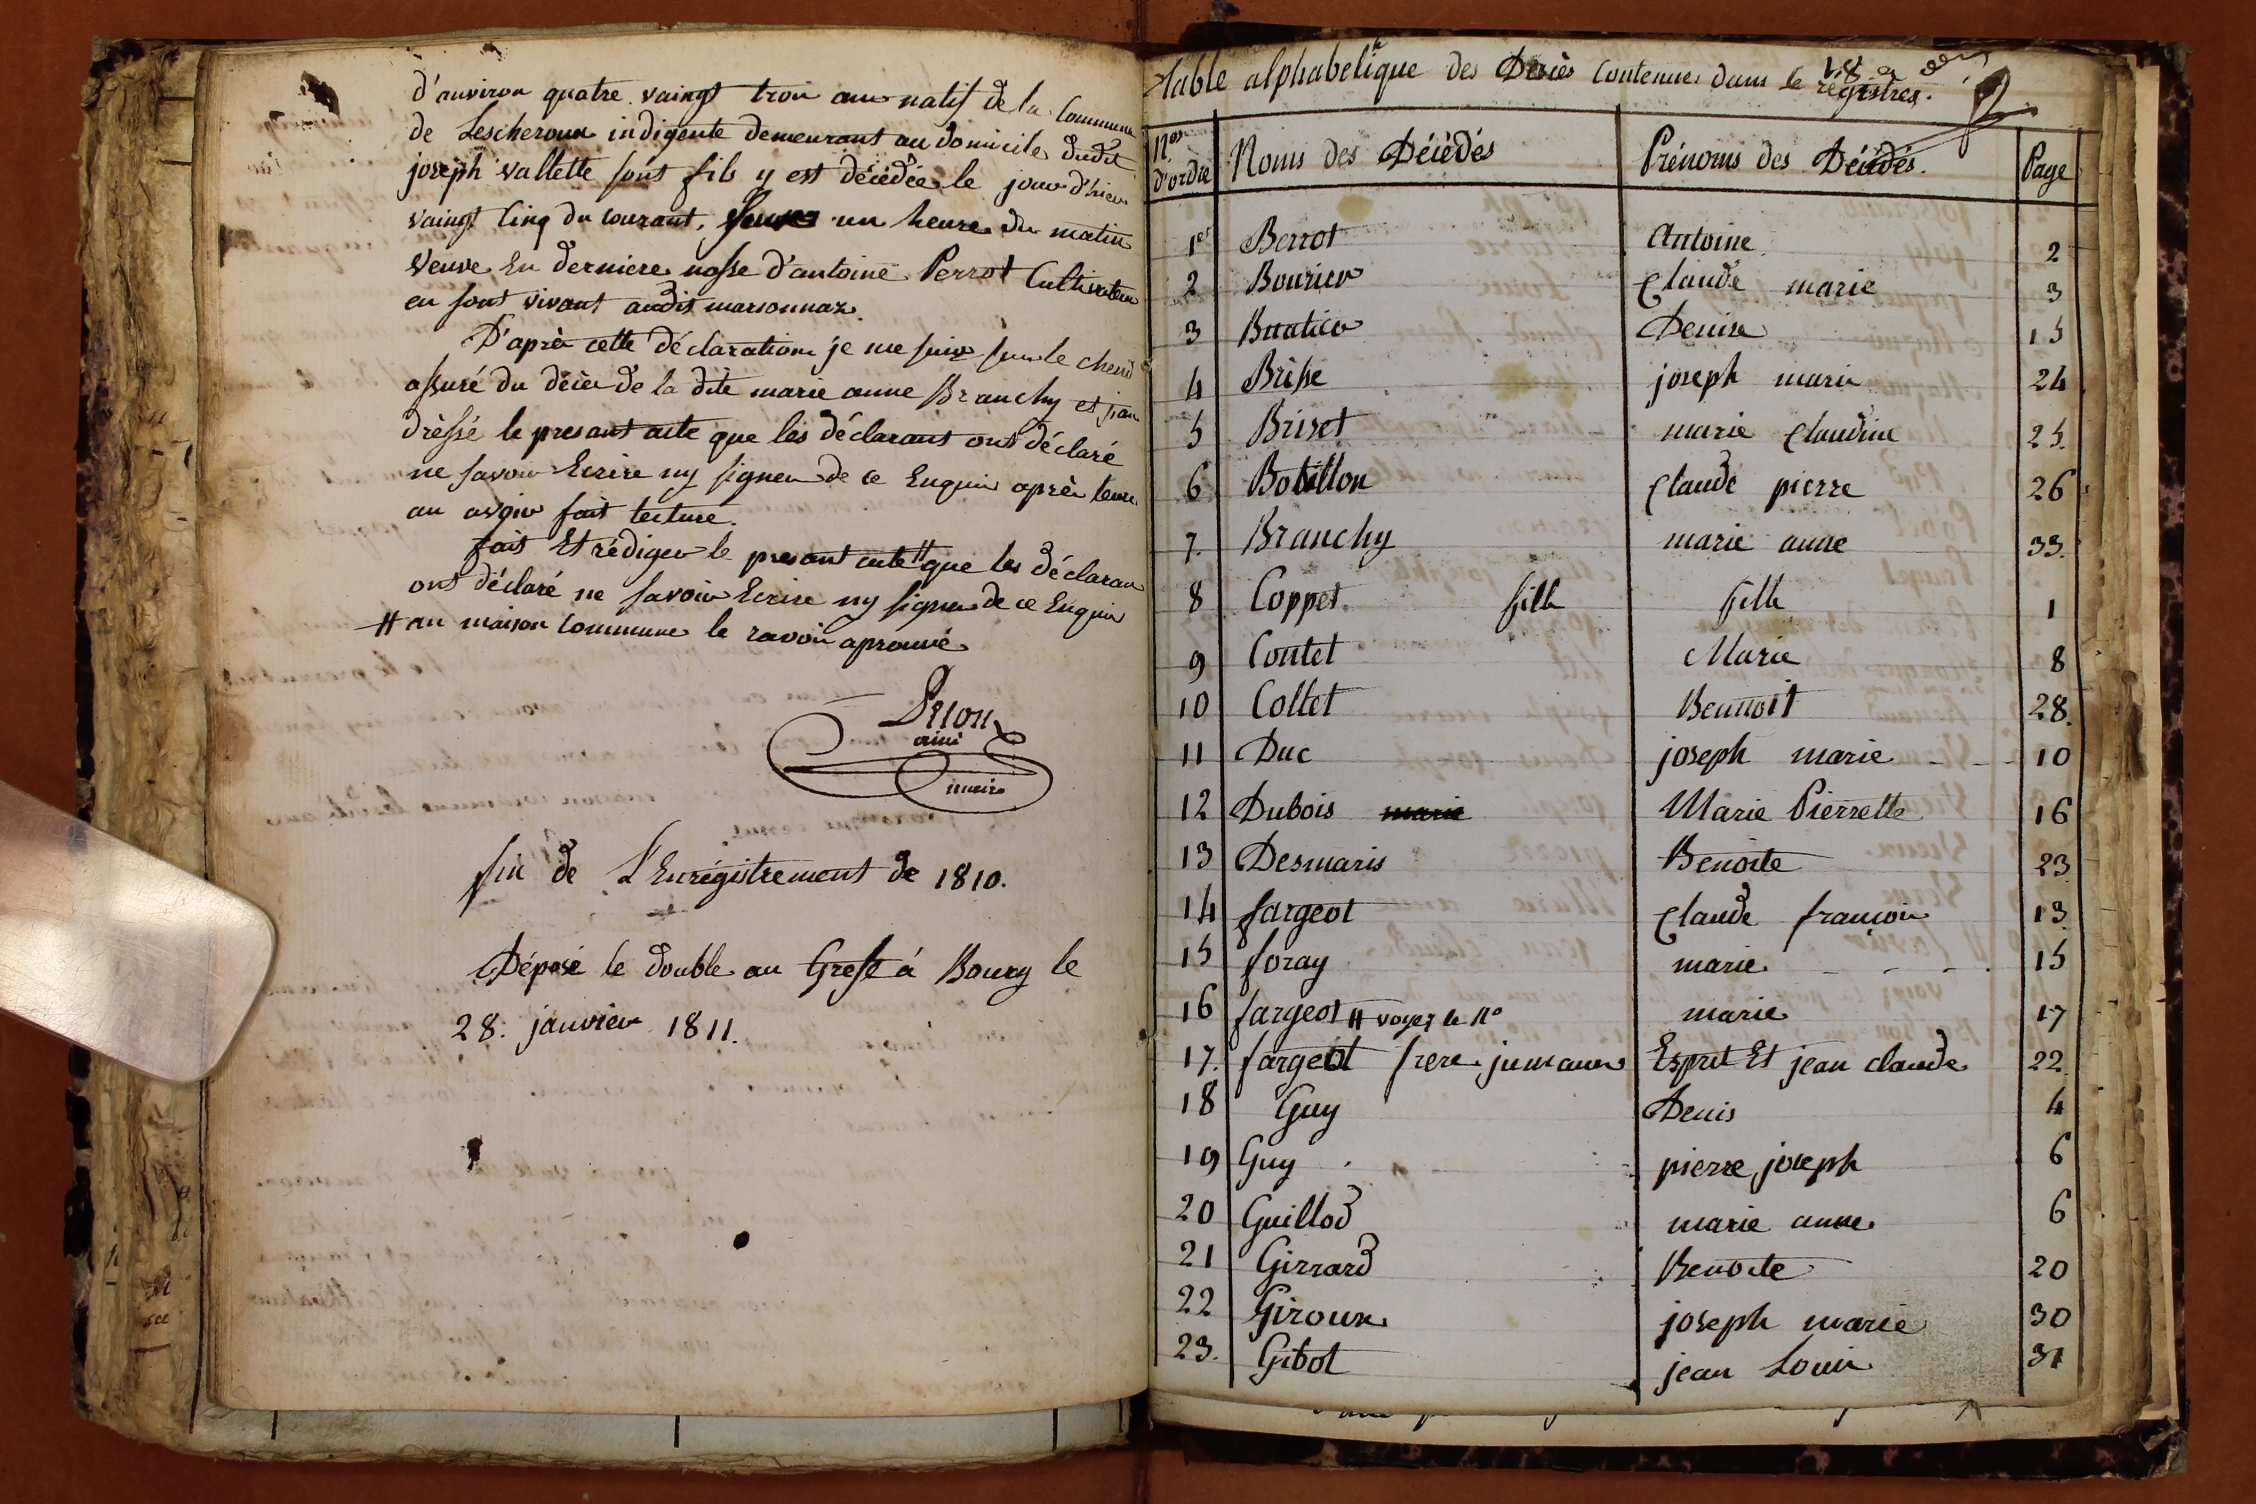 d'anviron quatre vaingt troi ans natif de la Commune
de Lescheroux indigente demeurant au domicile dudit
joseph vallette sont fils y est décédée le jour d'hier
vaingt cinq du courant, un heure du matin
veuve En derniere nosse d'antoine Perrot Cultivateur
en sont vivant audit marsonnax.
D'après cette déclaration je me suis sur le cheud
assuré du décès de la dite marie anne Branchy et j'an
dréssé le presant acte que les déclarants ont déclaré
ne savoir Ecrire ny signer de ce Enquis après leure
an avoir fait lecture.
fait Et rédiger le presant acte # que les déclaran
ont déclaré ne savoir Ecrire ny signer de ce Enquis
# an maison Commune le ravoir aprouvé
ainé
maire
fin de L'Enrégistrement de 1810.
Déposé le double au Greffe á Bourg le
28. janvier 1811.
table alphabetique des Décès Contenues dans le régistres.
Nos d'ordre Noms des Décédés Prénoms des Décédés. Page
1er Berrot Antoine 2
2 Bourier Claude marie 3
3 Denise 15
4 Brisse joseph marie 24
5 Brivet marie Claudine 25.
6 Botillon Claude pierre 26
7. Branchy marie anne 33.
8 Coppet fille fille 1
9 Contet Marie 8
10 Collet Bennoit 28.
11 Duc joseph marie - - - 10
12 Dubois marie Marie Pierrette 16
13 Desmaris Benoite 23
14 fargeot Claude françois 13
15 foray marie - - - 15
16 fargeot # voyez le No marie 17
17. fargeot frere jumaux Esprit Et jean claude 22
18 Guy Denis 4
19 Guy pierre joseph 6
20 Guillod marie anne 6
21 Girrard Benoite 20
22 Giroux joseph marie 30
23. Gibot jean Louis 31